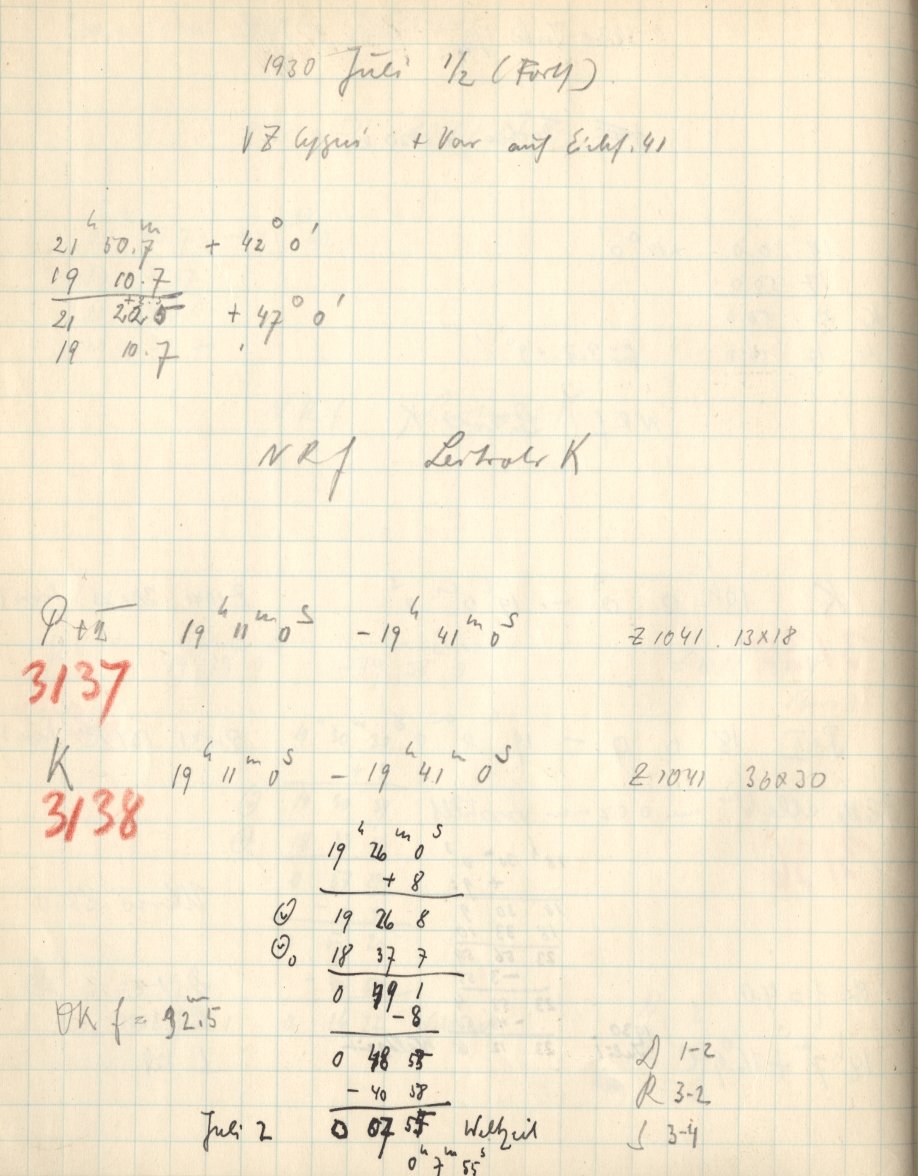 1930 Juli 1/2 (Forts)
VZ Cygni + Var auf Eichf. 41
21ʰ 50.7ᵐ + 42° 0'
19 10.7
21 22.5 + 47° 0'
19 10.7
NRf Leitrohr K
P + 19ʰ 11ᵐ 0ˢ – 19ʰ 41ᵐ 0ˢ Z 1041 . 13x18
3137
K 19ʰ 11ᵐ 0ˢ – 19ʰ 41ᵐ 0ˢ Z 1041 36x30
3138
19ʰ 26ᵐ 0ˢ
+ 8
19 26 8
18 37 7
0 49 1
– 8
f = 92ᵐ.5
0 48 53
– 40 58
D 1-2
R 3-2
S 3-4
Juli 2 0 07 55 Weltzeit
0ʰ 7ᵐ 55ˢ